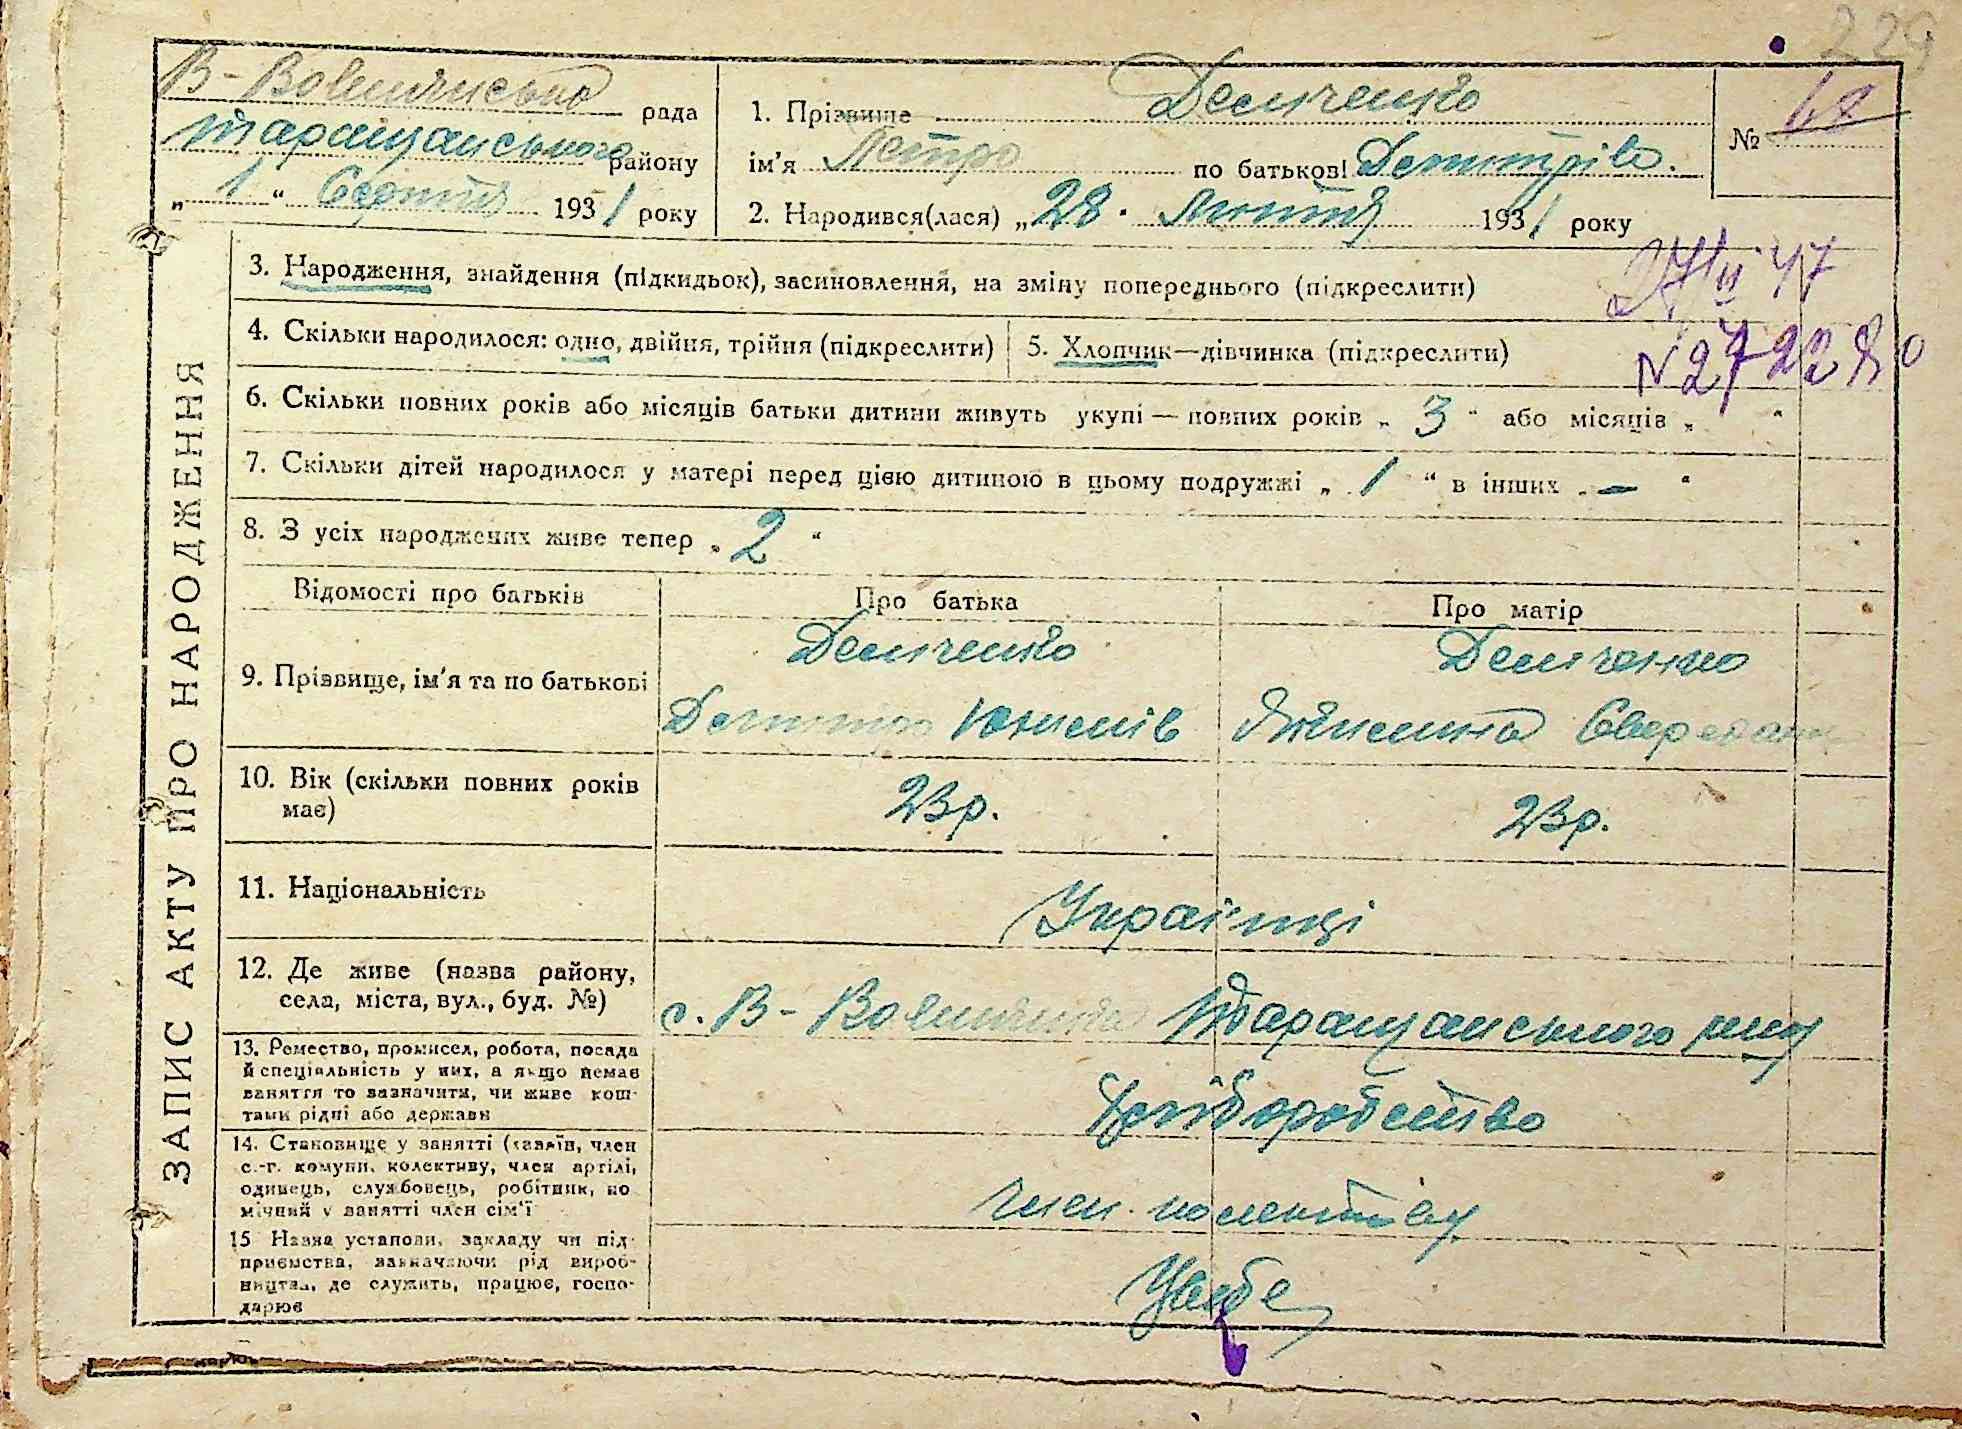 229
В-Вовнянська рада
Таращанського району
„ 1 “ Серпня 1931 року
1. Прізвище Демченко
ім'я Петро по батькові Дмитрів.
2. Народився(лася) „ 28 “ Лютня 1931 року
№ 68
ЗАПИС АКТУ ПРО НАРОДЖЕННЯ
3. Народження, знайдення (підкидьок), засиновлення, на зміну попереднього (підкреслити)
4. Скільки народилося: одно, двійня, трійня (підкреслити)
5. Хлопчик—дівчинка (підкреслити)
6. Скільки повних років або місяців батьки дитини живуть укупі — повних років „ 3 “ або місяців „ “
7. Скільки дітей народилося у матері перед цією дитиною в цьому подружжі „ 1 “ в інших „ – “
8. З усіх народжених живе тепер „ 2 “
Відомості про батьків
Про батька
Про матір
9. Прізвище, ім'я та по батькові
Демченко
Дмитро
Демченко
10. Вік (скільки повних років
має)
23р.
23р.
11. Національність
Українці
12. Де живе (назва району,
села, міста, вул., буд. №)
с. В-Вовнянка Таращанського
13. Ремество, промисел, робота, посада
й спеціяльність у них, а якщо немає
заняття то зазначити, чи живе кош-
тами рідні або держави
Хліборобство
14. Становище у занятті (хазяїн, член
с.-г. комуни, колективу, член артілі,
одинець, службовець, робітник, по
мічний у занятті член сім'ї
член колективу
15 Назва установи, закладу чи під-
приємства, зазначаючи рід вироб-
ництва, де служить, працює, госпо-
дарює
У себе